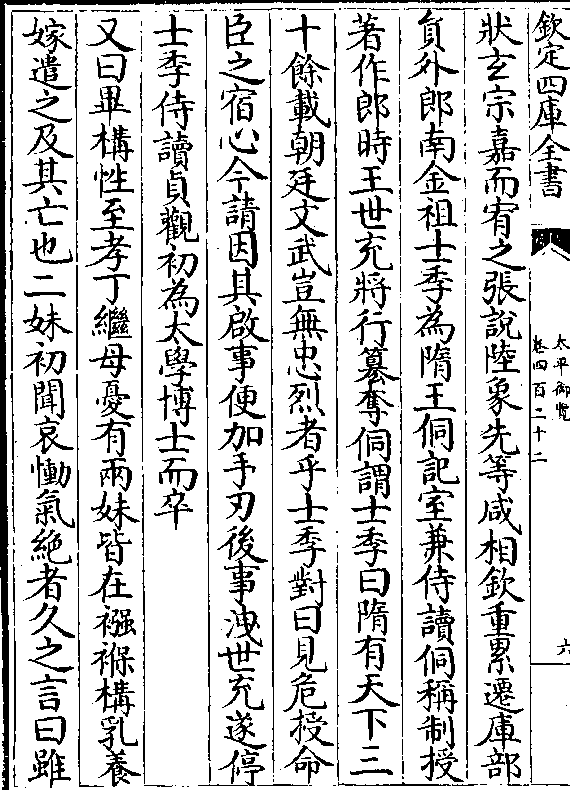 欽定四庫全書
太平御覧
卷四百二十二
六
狀玄宗嘉而宥之張說陸象先等咸相欽重累遷庫部
貟外郎南金祖士季為隋王侗記室兼侍讀侗稱制授
著作郎時王世充將行簒奪侗謂士季曰隋有天下三
十餘載朝廷文武豈無忠烈者乎士季對曰見危授命
臣之宿心今請因其啟事便加手刃後事洩世充遂停
士季侍讀貞觀初為太學博士而卒
又曰畢構性至孝丁繼母憂有兩妹皆在襁褓構乳養
嫁遣之及其亡也二妹初聞哀慟氣絶者久之言曰雖